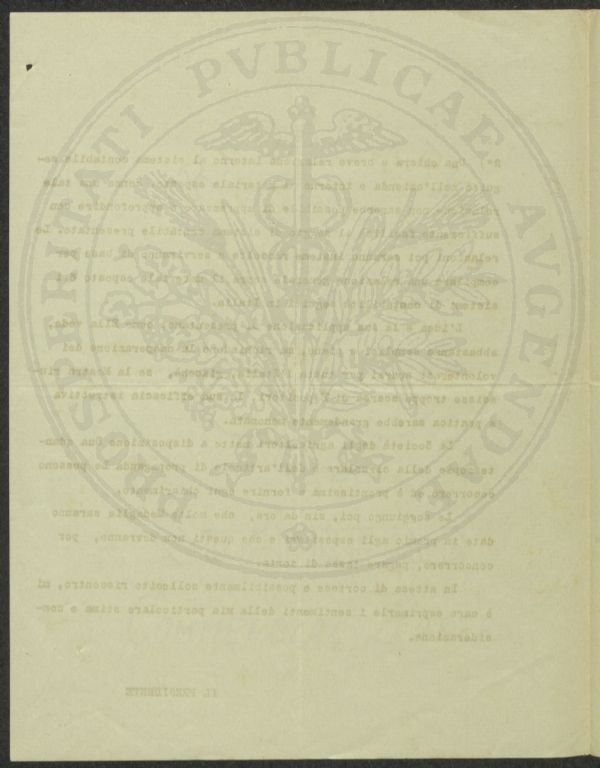 PROSPERITATI PVBLICAE AVGENDAE
Una chiara e breve relazione intorno al sistema contabile se-
guito nell'azienda e intorno al materiale esposto, senza una tale
relazione non sarebbe possibile di apprezzare e approfondire con
sufficiente facilità il sistema contabile presentato. Le
relazioni poi saranno insieme raccolte e serviranno di base per
compilare una relazione generale sopra il materiale esposto e i
sistemi di contabilità seguiti in Italia.
L'idea e la sua applicazione si presentano, come Ella vede,
abbastanza semplici e piane, ma richiedono la cooperazione dei
volonterosi sparsi per tutta l'Italia, se la Mostra riu-
scisse troppo scarsa di Espositori, la sua efficacia istruttiva
e pratica sarebbe grandemente menomata.
La Società degli agricoltori mette a disposizione Sua quan-
te copie della circolare e dell'articolo di propaganda Le possono
occorrere ed è prontissima a fornire ogni chiarimento.
Le soggiungo poi, sin da ora, che molte Medaglie saranno
date in premio agli espositori e che questi non dovranno, per
concorrere, pagare tassa di sorta.
In attesa di cortese e possibilmente sollecito riscontro, mi
è caro esprimerle i sentimenti della mia particolare stima e con-
siderazione.
IL PRESIDENTE